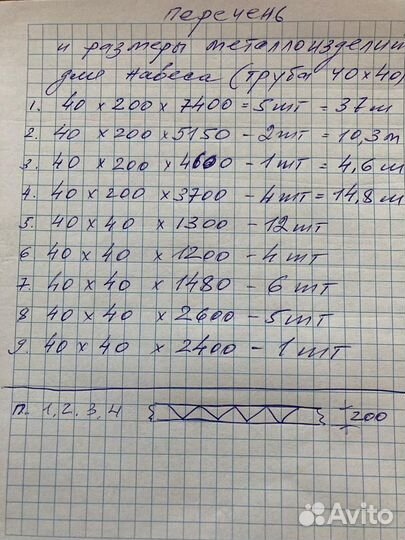 Перечень
и размеры металлоизделий
для навеса (труба 40х40)
1. 40 х 200 х 7400 = 5шт = 37м
2. 40 х 200 х 5150 - 2шт = 10,3м
3. 40 х 200 х 4600 - 1шт = 4,6м
4. 40 х 200 х 3700 - 4шт = 14,8м
5. 40 х 40 х 1300 - 12шт
6 40 х 40 х 1200 - 4шт
7. 40 х 40 х 1480 - 6шт
8 40 х 40 х 2600 - 5шт
9. 40 х 40 х 2400 - 1шт
п. 1, 2, 3, 4 200
Avito